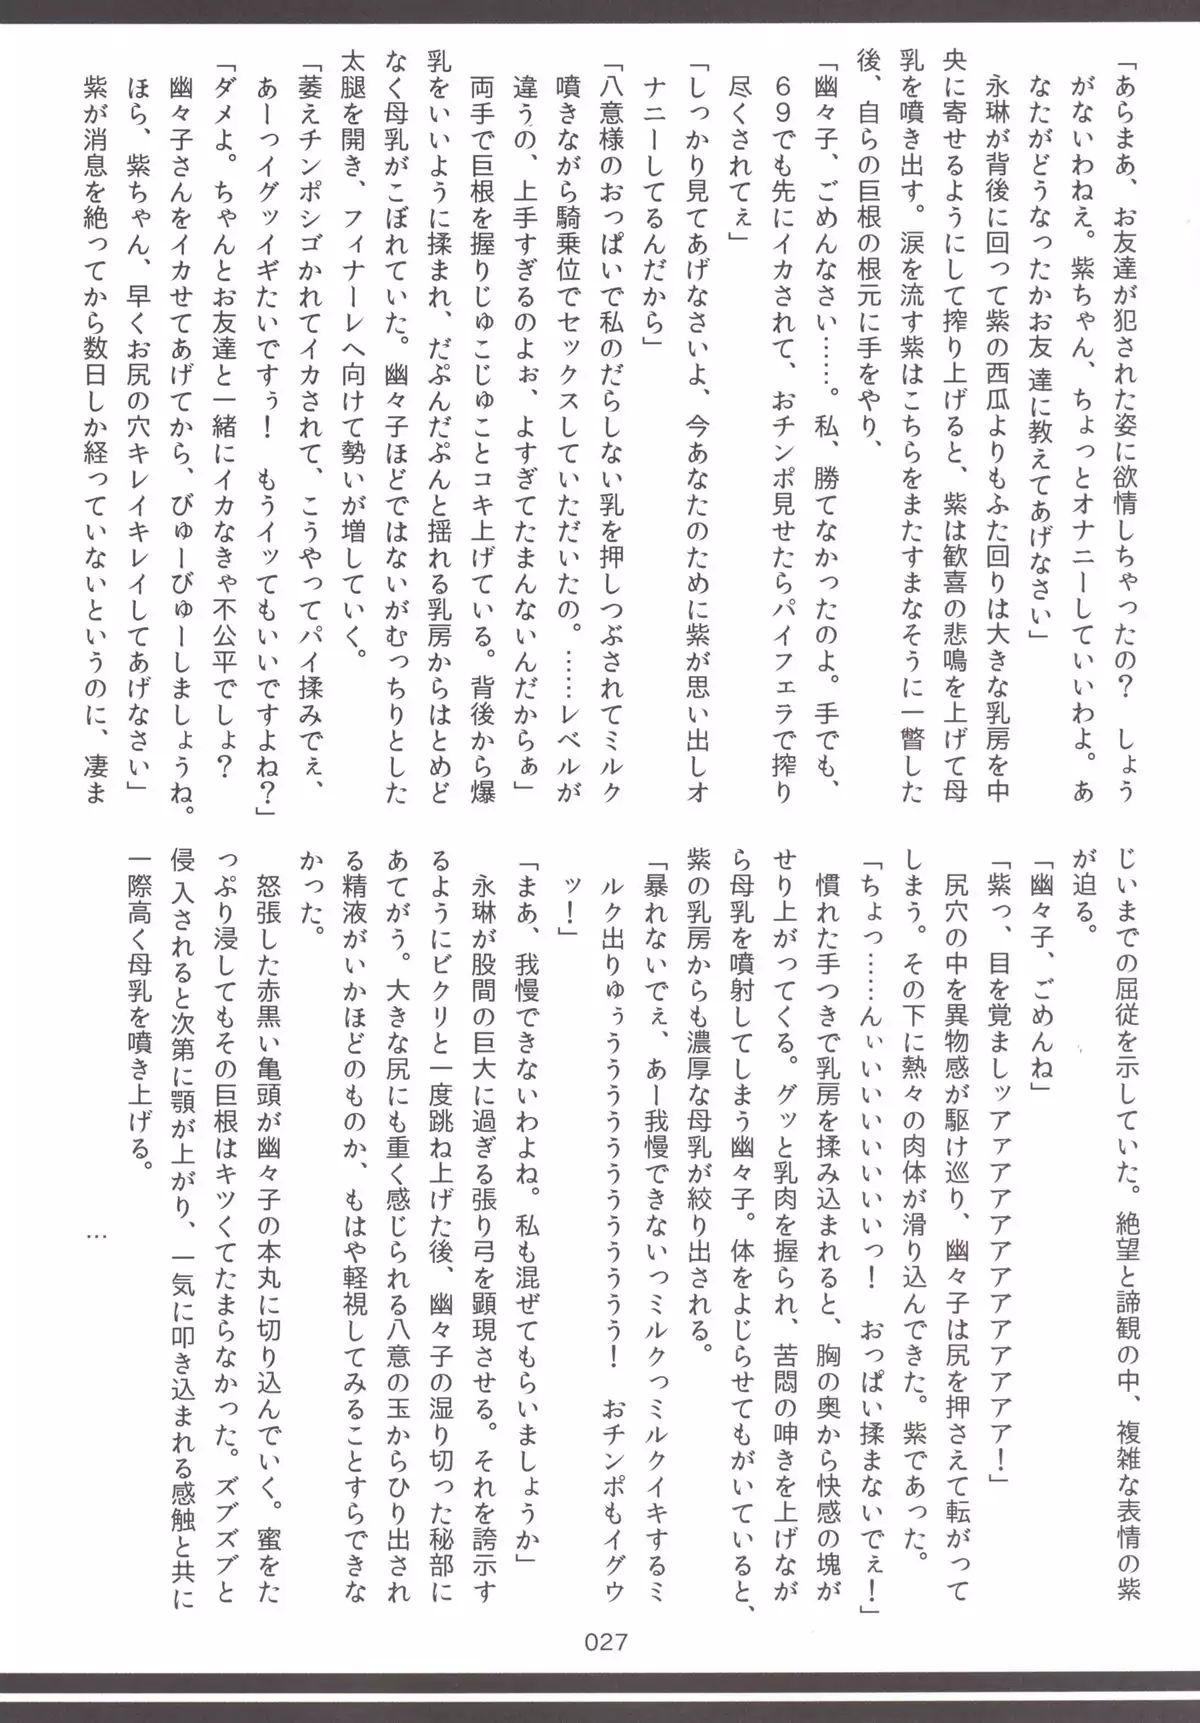 「あらまあ、お友達が犯された姿に欲情しちゃったの？　しょう
がないわねえ。紫ちゃん、ちょっとオナニーしていいわよ。あ
なたがどうなったかお友 達に教えてあげなさい」
永琳が背後に回って紫の西瓜よりもふた回りは大きな乳房を中
央に寄せるようにして搾り上げると、紫は歓喜の悲鳴を上げて母
乳を噴き出す。涙を流す紫はこちらをまたすまなそうに一瞥した
後、自らの巨根の根元に手をやり、
「幽々子、ごめんなさい……。私、勝てなかったのよ。手でも、
６９でも先にイカされて、おチンポ見せたらパイフェラで搾り
尽くされてぇ」
「しっかり見てあげなさいよ、今あなたのために紫が思い出しオ
ナニーしてるんだから」
「八意様のおっぱいで私のだらしない乳を押しつぶされてミルク
噴きながら騎乗位でセックスしていただいたの。……レベルが
違うの、上手すぎるのよぉ、よすぎてたまんないんだからぁ」
両手で巨根を握りじゅこじゅことコキ上げている。背後から爆
乳をいいように揉まれ、だぷんだぷんと揺れる乳房からはとめど
なく母乳がこぼれていた。幽々子ほどではないがむっちりとした
太腿を開き、フィナーレへ向けて勢いが増していく。
「萎えチンポシゴかれてイカされて、こうやってパイ揉みでぇ、
あーっイグッイギたいですぅ！　もうイッてもいいですよね？」
「ダメよ。ちゃんとお友達と一緒にイカなきゃ不公平でしょ？
幽々子さんをイカせてあげてから、びゅーびゅーしましょうね。
ほら、紫ちゃん、早くお尻の穴キレイキレイしてあげなさい」
紫が消息を絶ってから数日しか経っていないというのに、凄ま
じいまでの屈従を示していた。絶望と諦観の中、複雑な表情の紫
が迫る。
「幽々子、ごめんね」
「紫っ、目を覚ましッアアアアアアアアアアアアア！」
尻穴の中を異物感が駆け巡り、幽々子は尻を押さえて転がって
しまう。その下に熱々の肉体が滑り込んできた。紫であった。
「ちょっ……んぃいいいいいいいっ！　おっぱい揉まないでぇ！」
慣れた手つきで乳房を揉み込まれると、胸の奥から快感の塊が
せり上がってくる。グッと乳肉を握られ、苦悶の呻きを上げなが
ら母乳を噴射してしまう幽々子。体をよじらせてもがいていると、
紫の乳房からも濃厚な母乳が絞り出される。
「暴れないでぇ、あー我慢できないっミルクっミルクイキするミ
ルク出りゅぅうううううううううう！　おチンポもイグウ
ッ！」
「まあ、我慢できないわよね。私も混ぜてもらいましょうか」
永琳が股間の巨大に過ぎる張り弓を顕現させる。それを誇示す
るようにビクリと一度跳ね上げた後、幽々子の湿り切った秘部に
あてがう。大きな尻にも重く感じられる八意の玉からひり出され
る精液がいかほどのものか、もはや軽視してみることすらできな
かった。
怒張した赤黒い亀頭が幽々子の本丸に切り込んでいく。蜜をた
っぷり浸してもその巨根はキツくてたまらなかった。ズブズブと
侵 入されると次第に顎が上がり、一気に叩き込まれる感触と共に
一際高く母乳を噴き上げる。
…
027